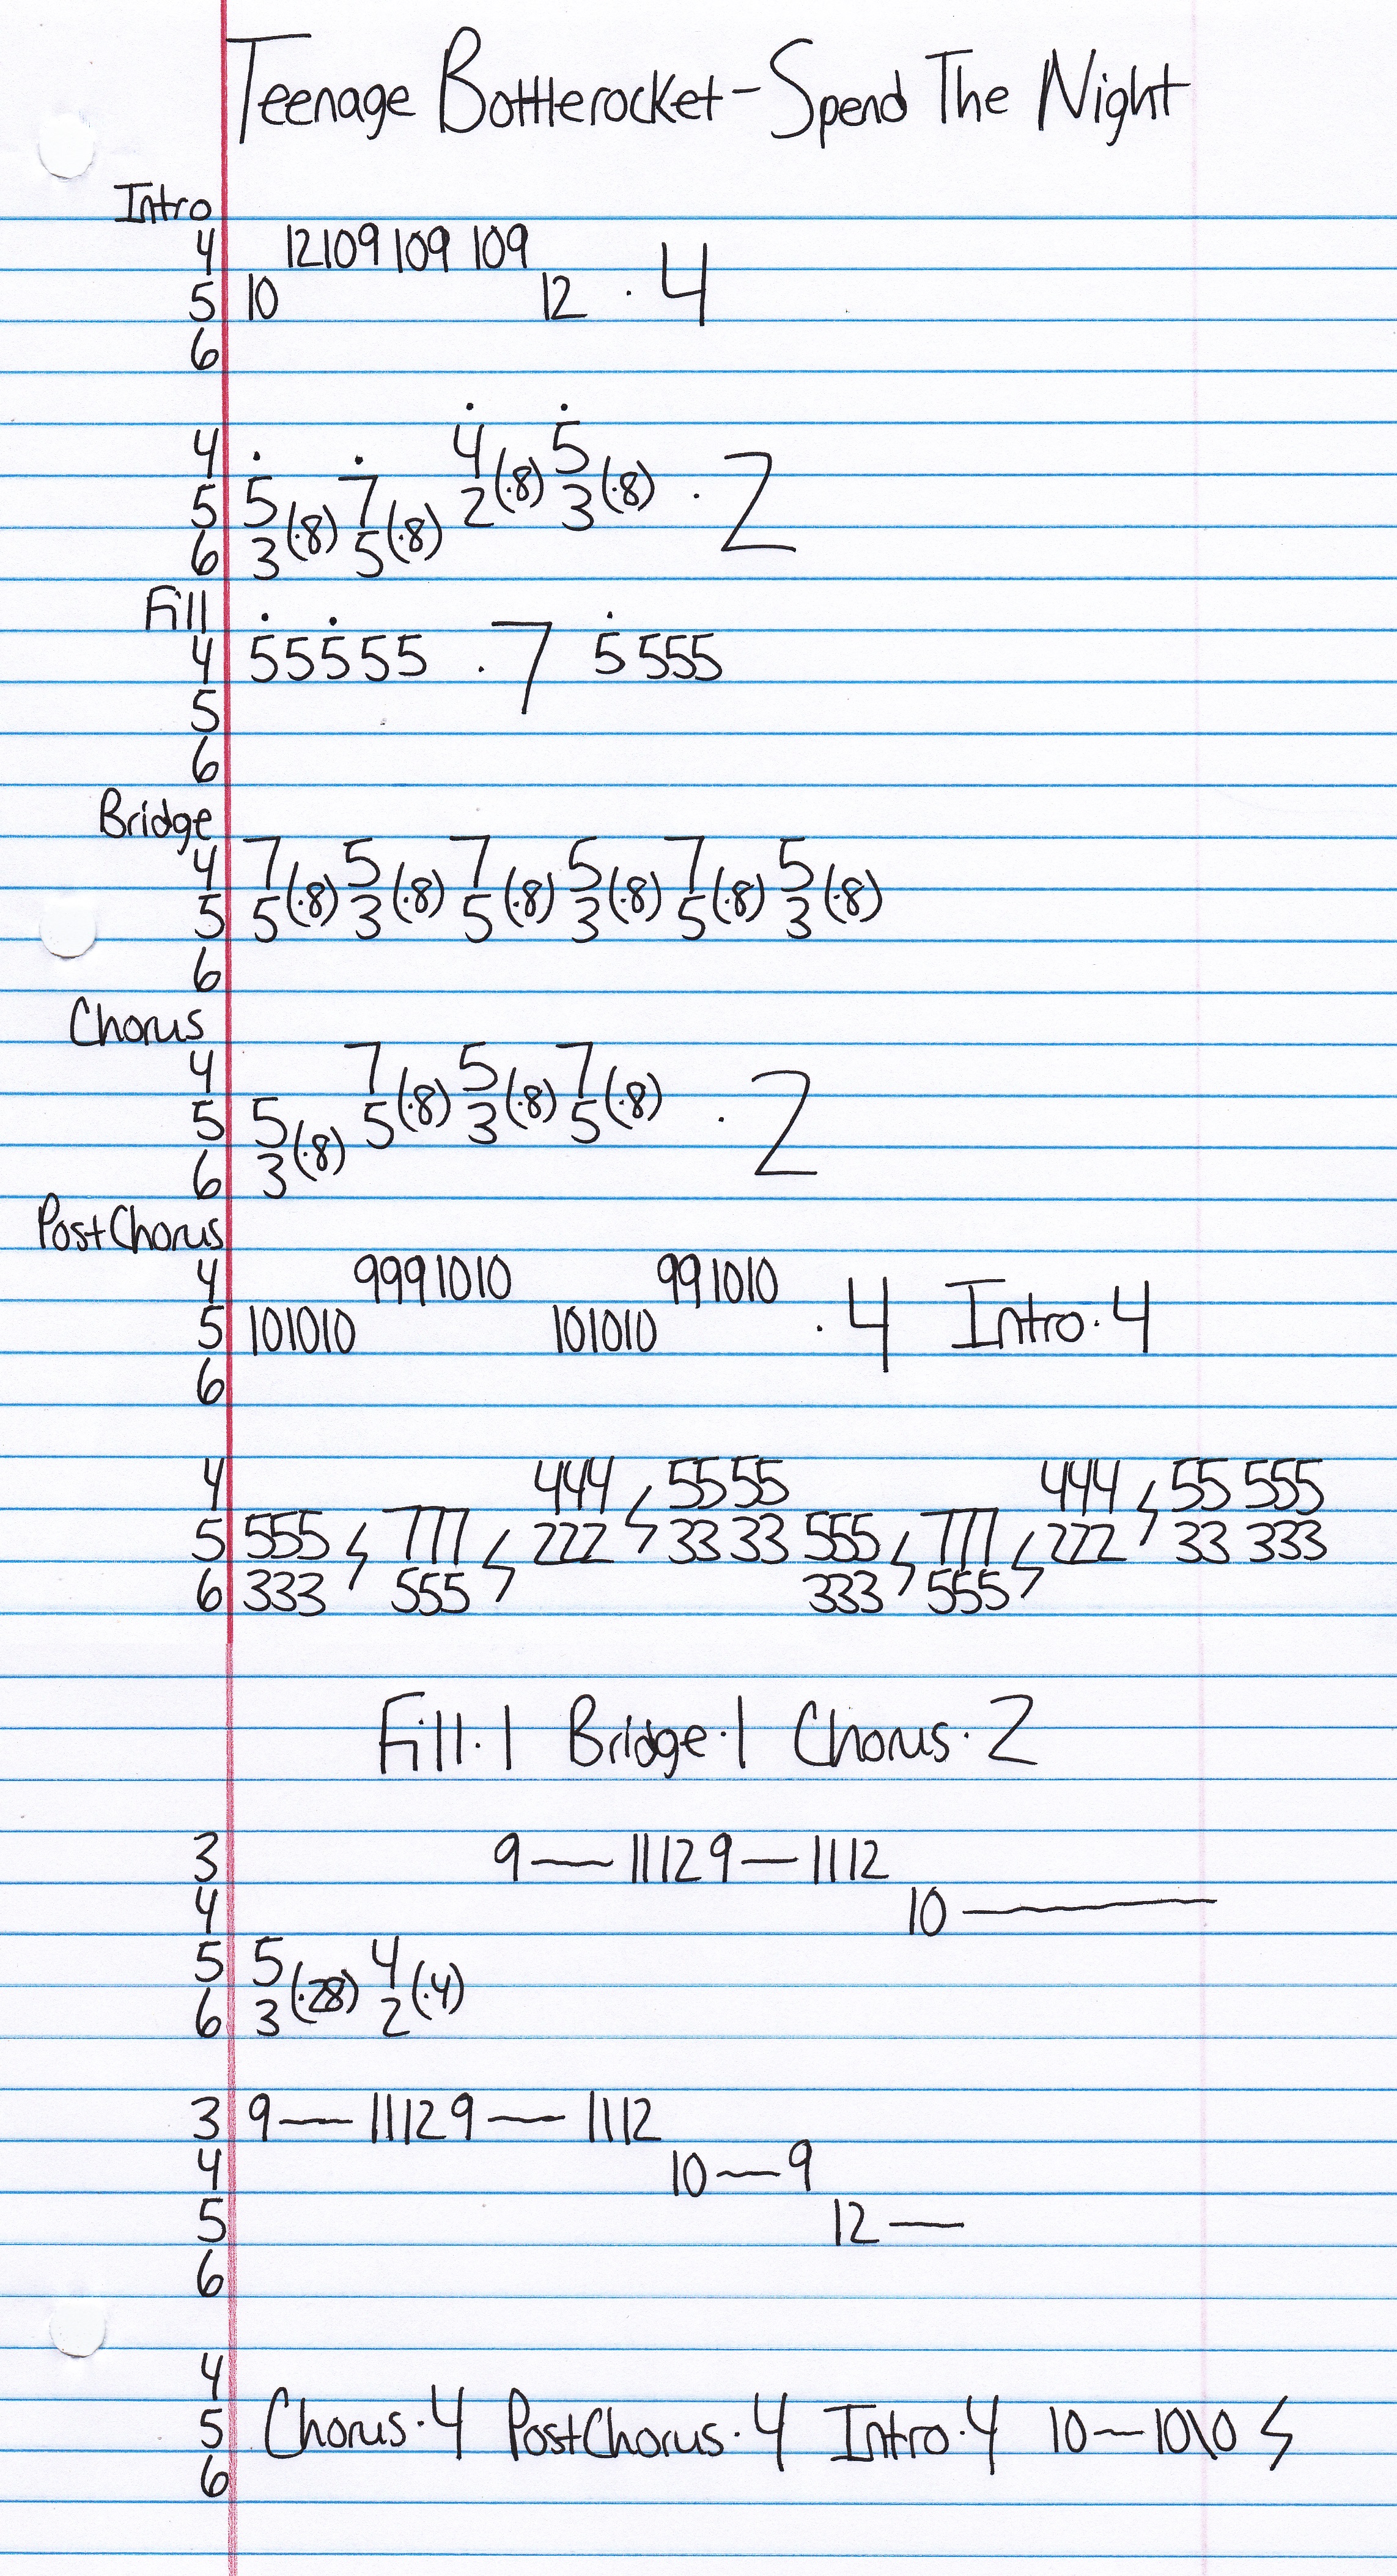 Teenage Bottlerocket - Spend The Night
Intro
4 12109 109 109
5 10 12 · 4
6
4 4 5
5 5 (·8) 7 (·8) 2 (·8) 3 (·8) · 2
6 3 5
Fill
4 5 5 5 5 5 · 7 5 5 5 5
5
6
Bridge
4 7 (·8) 5 (·8) 7 (·8) 5 (·8) 7 (·8) 5 (·8)
5 5 3 5 3 5 3
6
Chorus
4 7 (·8) 5 (·8) 7 (·8)
5 5 (·8) 5 3 5 · 2
6 3
PostChorus
4 9991010 991010
5 101010 101010 · 4 Intro · 4
6
4 444 55 55 444 55 555
5 555 ϟ 777 ϟ 222 ϟ 33 33 555 ϟ 777 ϟ 222 ϟ 33 333
6 333 555 333 555
Fill · 1 Bridge · 1 Chorus · 2
3 9 — 11129 — 1112
4 10 ———
5 5 (·28) 4 (·4)
6 3 2
3 9 — 11129 — 1112
4 10 — 9
5 12 —
6
4
5 Chorus · 4 PostChorus · 4 Intro · 4 10 — 10\0 ϟ
6